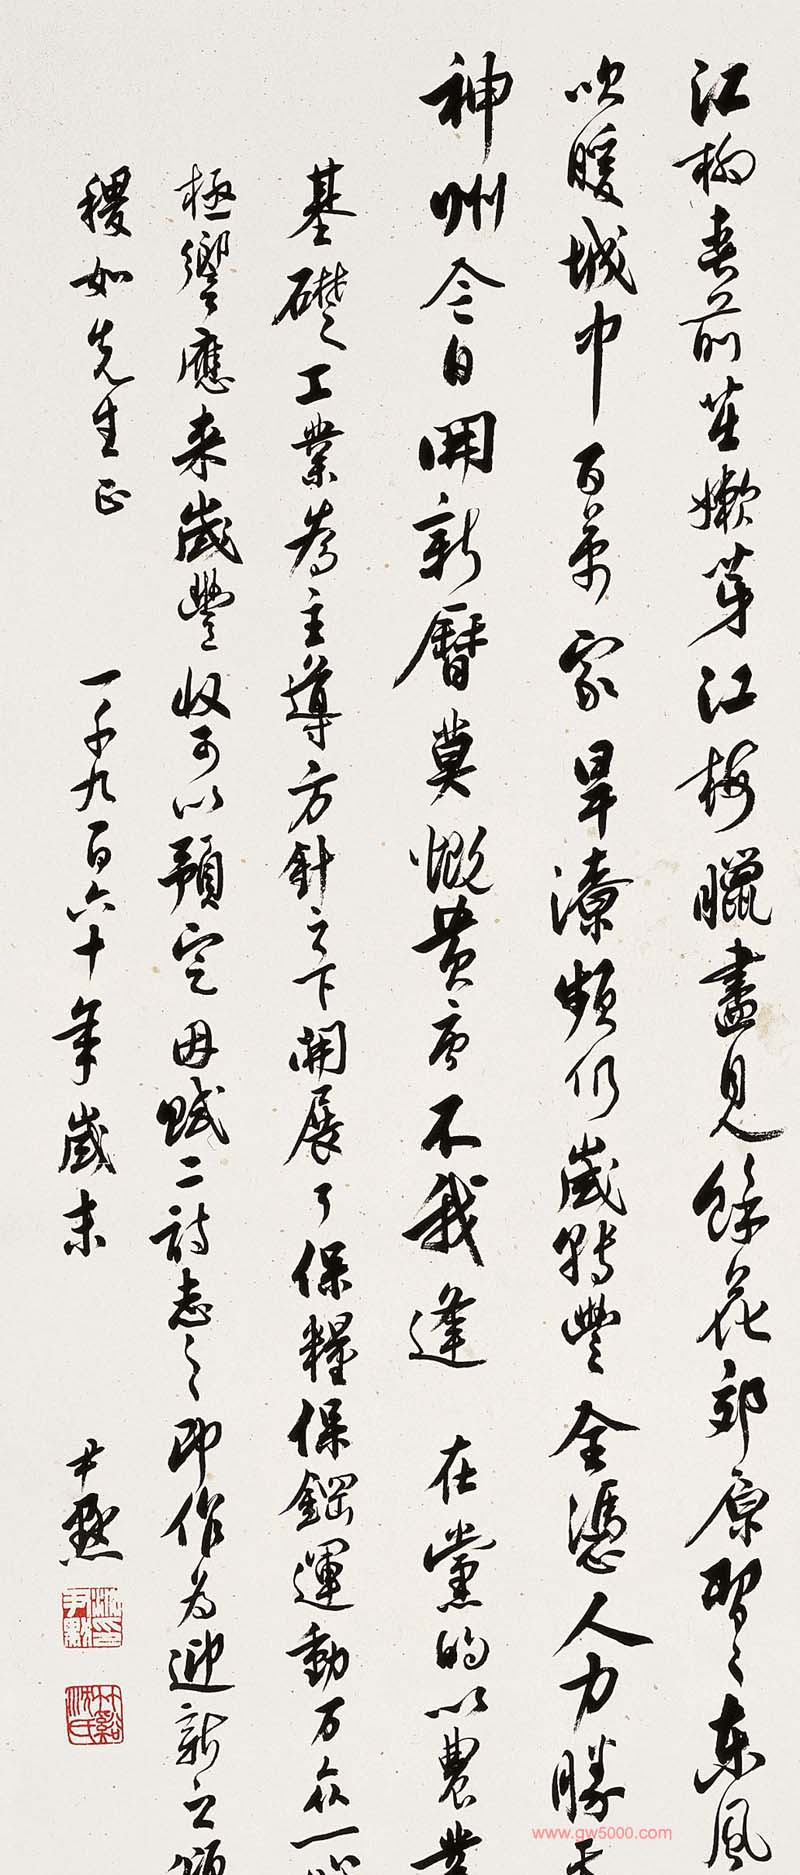 江柳春前茁嫩芽江梅臘盡見餘花郊原習〻東風
吹暖城中百萬家旱潦頻仍歲轉豐全憑人力勝
神州今日開新曆莫慨黄唐不我逢 在黨的以農業
基礎工業為主導方針之下開展了保糧保鋼運動万众一
極響應来歲豐收可以預定毋賦二詩志之即作为迎新之頌
稷如先生正 一千九百六十年歲末 尹默
沈尹默
竹谿沈氏
www.gw5000.com